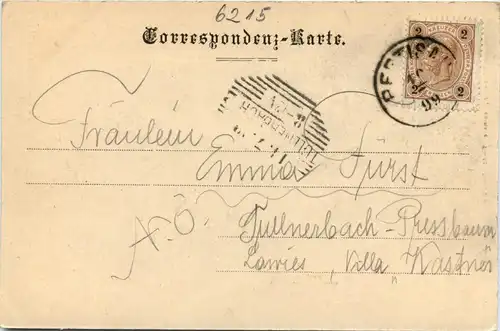 6215
Correspondenz-Karte.
2 2
2 2
PERTISAU
99
TULLNERBACH
Fräulein
Emma Fürst
N. Ö.
Tullnerbach-Pressbaum
Lawies, "Villa" Kastner